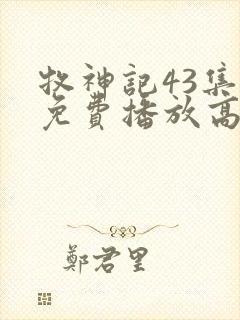 牧神記43集
免費播放高
鄭君里